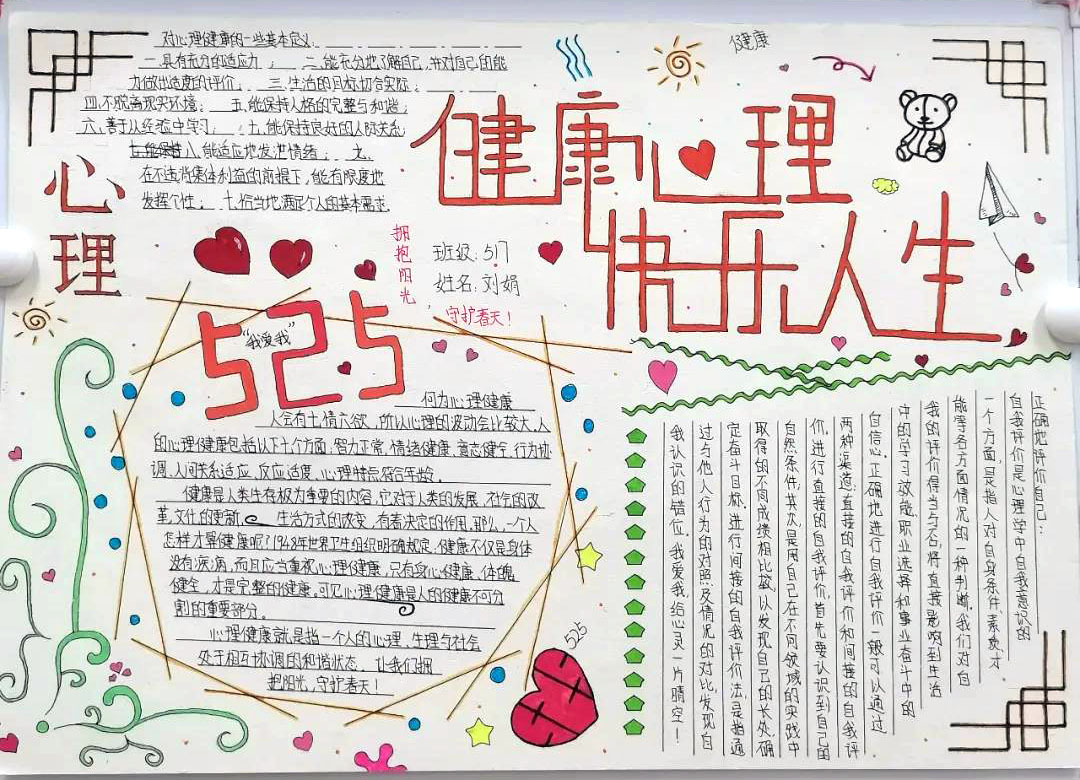 对心理健康的一些基本定义
一.具有充分的适应力； 二.能充分地了解自己,并对自己的能
力做出适度的评价； 三.生活的目标切合实际；
四.不脱离现实环境； 五.能保持人格的完整与和谐；
六.善于从经验中学习； 七.能保持良好的人际关系；
八.能适应地发泄情绪； 九.
在不违背集体利益的前提下,能有限度地
发挥个性。 十.恰当地满足个人的基本需求.
健康
健康心理
快乐人生
心
理
拥
抱
阳
光
班级:517
姓名:刘娟
守护春天!
525
“我爱我”
何为心理健康
人会有七情六欲,所以心理的波动会比较大,人
的心理健康包括以下七个方面:智力正常,情绪健康,意志健全,行为协
调,人间关系适应,反应适度,心理特点符合年龄。
健康是人类生存极为重要的内容,它对于人类的发展,社会的改
革,文化的更新, 生活方式的改变,有着决定的作用,那么,一个人
怎样才算健康呢?1948年世界卫生组织明确规定,健康不仅是身体
没有疾病,而且应当重视心理健康,只有身心健康、体魄
健全,才是完整的健康。可见心理健康是人的健康不可分
割的重要部分。
心理健康就是指一个人的心理、生理与社会
处于相互协调的和谐状态。 让我们拥
抱阳光,守护春天!
525
正确地评价自己:
自我评价是心理学中自我意识的
一个方面,是指人对自身条件、素质、才
能等各方面情况的一种判断。我们对自
我的评价得当与否,将直接影响到生活
中的学习效能,职业选择和事业奋斗中的
自信心。正确地进行自我评价一般可以通过
两种渠道:直接的自我评价和间接的自我评
价,进行直接的自我评价,首先要认识到自己的
自然条件;其次是用自己在不同领域的实践中
取得的不同成绩相比较,以发现自己的长处,确
定奋斗目标。进行间接的自我评价法,是指通
过与他人行为的对照及情况的对比,发现自
我认识的错位。我爱我,给心灵一片晴空!